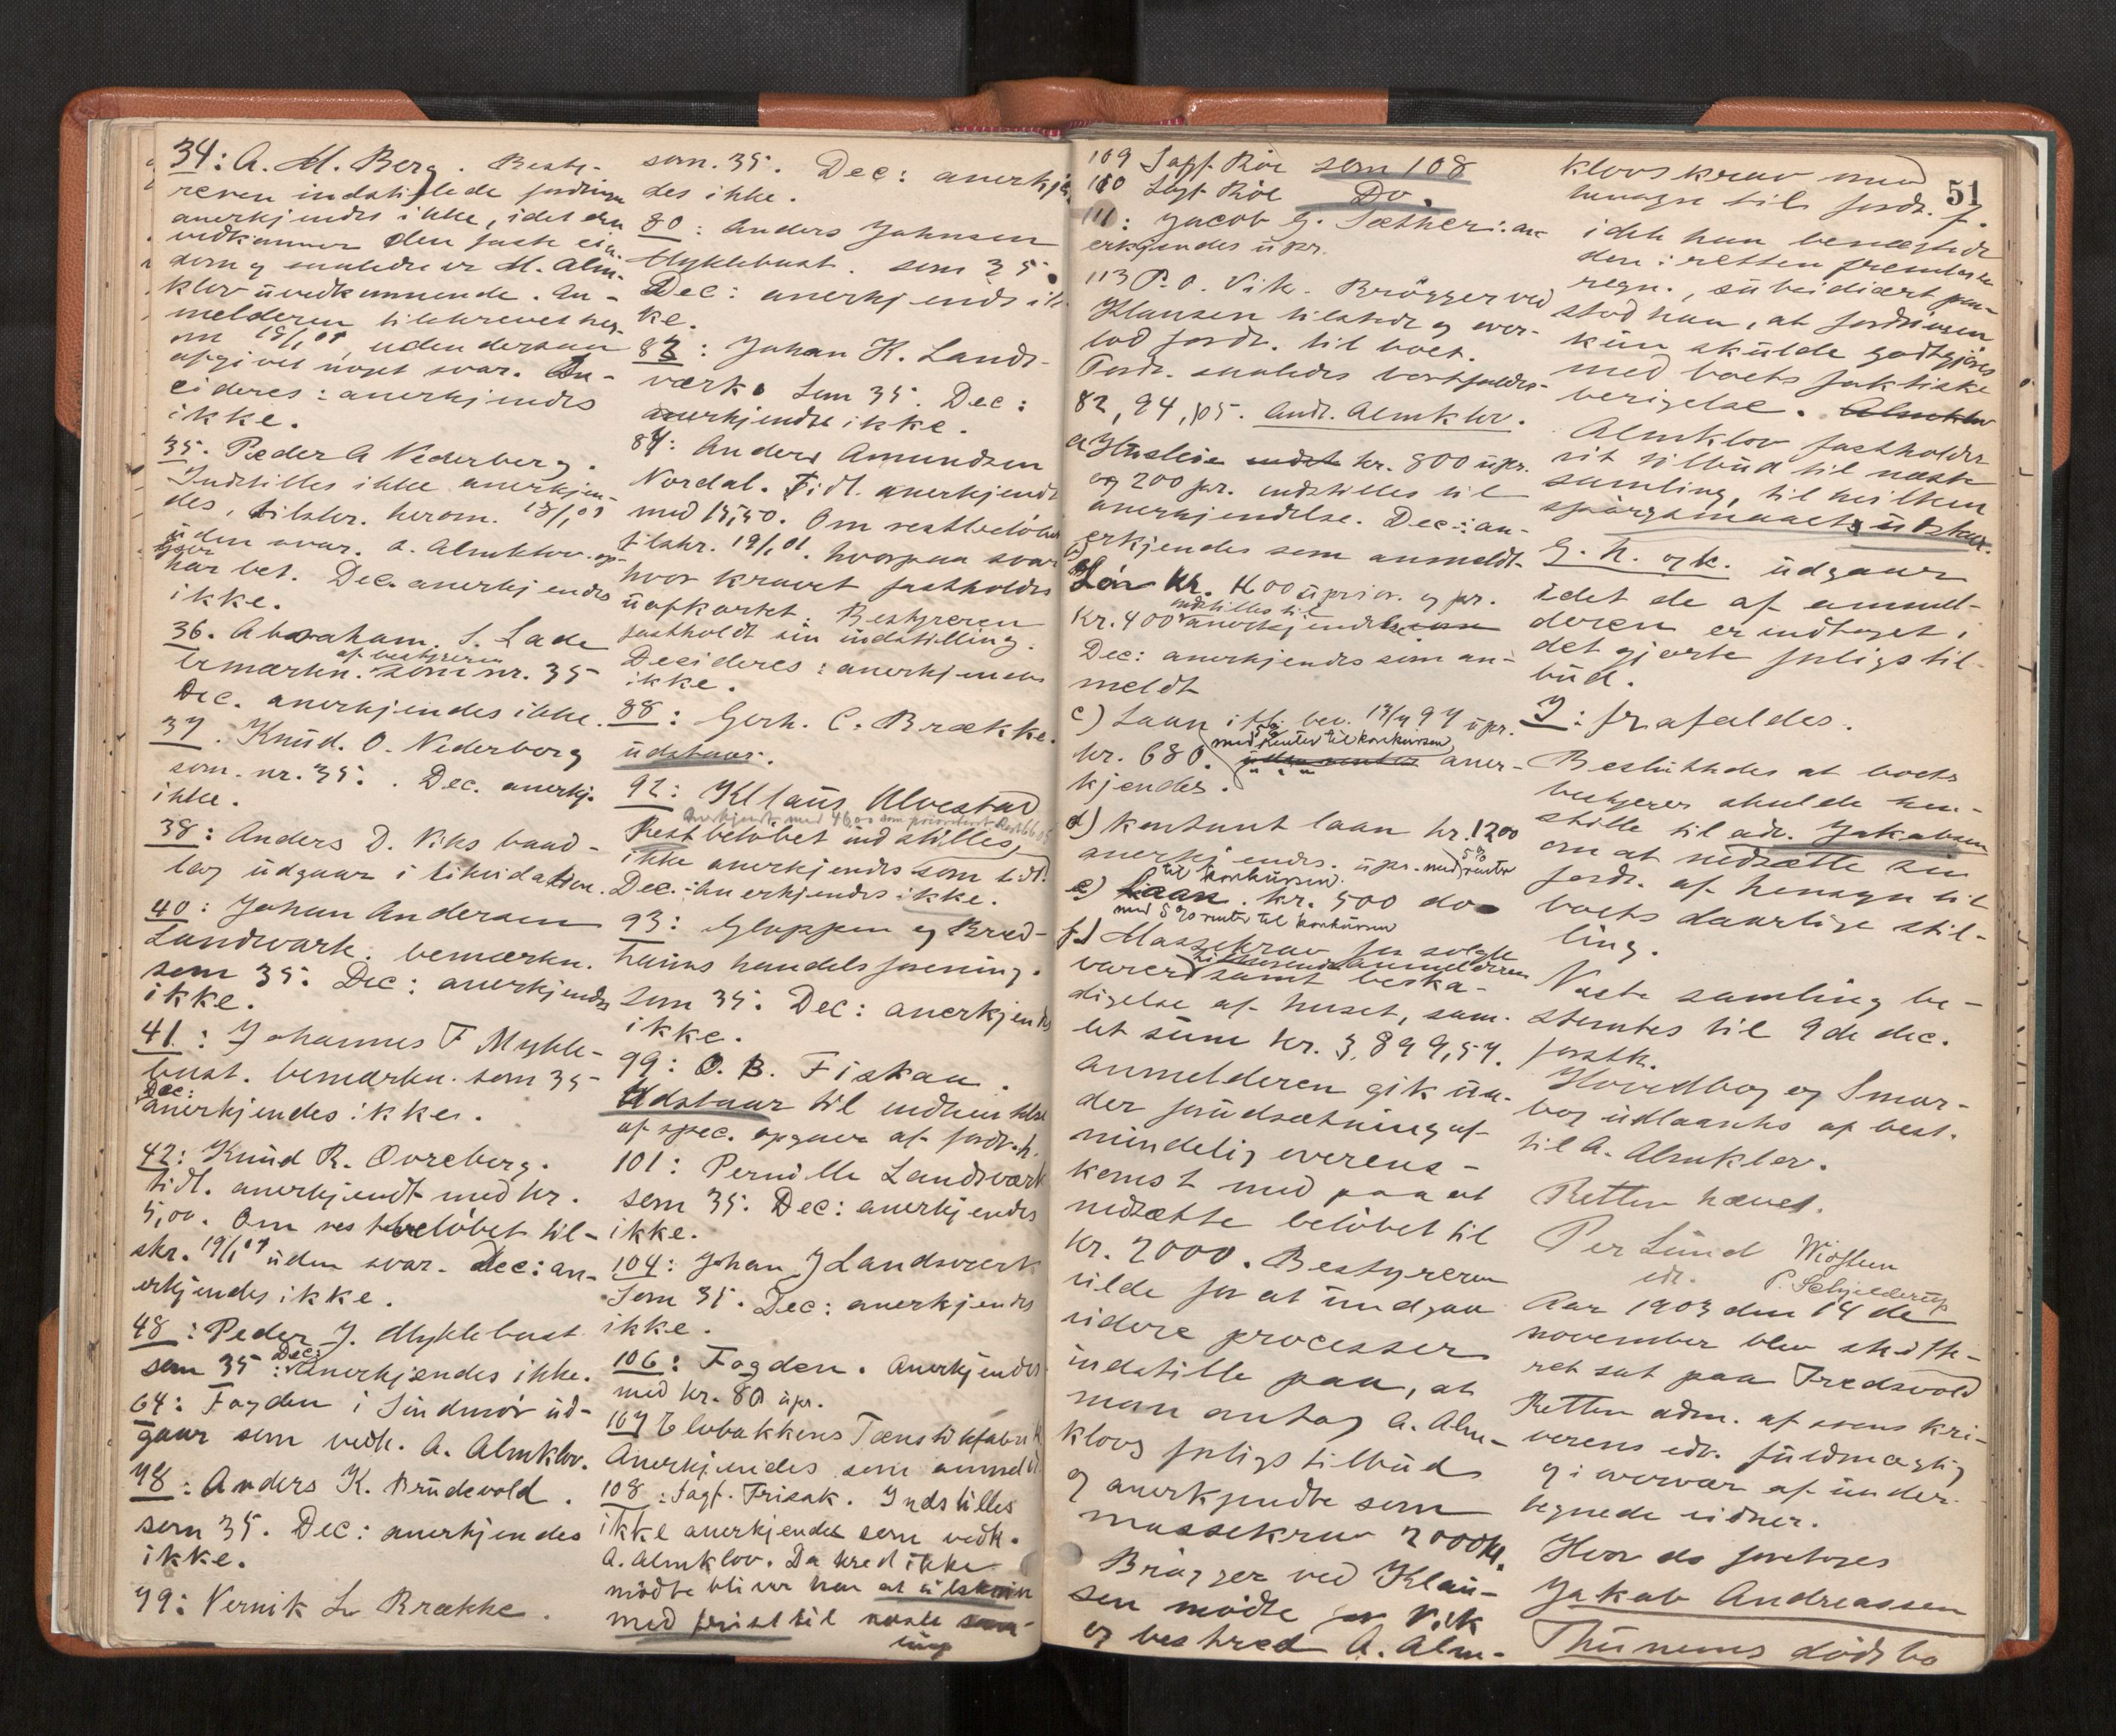 34: A. M. Berg. Besty-
reren indstillede fordringen
anerkjendes ikke, idet den
vedkommer den faste eien-
dom og saaledes er M. Alm-
klov uvedkommende. An-
melderen tilskrevet her-
om 19/1 01 uden dersaa
afgivet noget svar. De-
cideres: anerkjendes
ikke.
35. Peder A Nederberg.
Indstilles ikke anerkjen-
des, tilskr. herom. 18/1 01
uden svar. A. Almklov op-
gjør
har bet. Dec. anerkjendes
ikke.
36. Abraham. S. Lade
af bestyreren
bemærkn. som nr. 35
Dec. anerkjendes ikke.
37. Knud. O. Nederberg
som. nr. 35. Dec. anerkj.
ikke.
38: Anders D. Viks baad-
lag udgaar i likvidation.
40: Johan Andersen
Landvark. bemærkn.
som 35. Dec: anerkjendes
ikke.
41: Johannes F Mykle-
bust. bemærkn. som 35-
Dec:
anerkjendes ikke.
42: Knud R. Ovreberg.
tidl. anerkjendt med kr.
5,00. Om restbeløbet til-
skr. 19/1 01 uden svar. Dec: an-
erkjendes ikke.
48: Peder J. Myklebust
som 35: Dec: anerkjendes ikke.
64: Fogden i Søndmør ud-
gaar som vedk. A. Almklov.
78: Anders K. Brudevold.
som 35. Dec: anerkjendes
ikke.
79: Vernik L. Brække.
som. 35. Dec: anerkjen-
des ikke.
80: Anders Johnsen
Myklebust. som 35.
Dec: anerkjendes ik-
ke.
83: Johan K. Lands-
værk. Som 35. Dec:
anerkjendes ikke.
84: Anders Amundsen
Nordal. Tidl. anerkjendt
med 15,50. Om restbeløbet
tilskr. 19/1 01. hvorpaa svar
hvor kravet fastholdes
uafkortet. Bestyreren
fastholdt sin indstilling.
Decideres: anerkjendes
ikke.
88: Gerh. C. Brække.
udstaar.
92: Klaus Alvestad
Anerkjendt med 46,00 som prioriteret
Restbeløbet indstilles
ikke anerkjendes som tidl.
Dec.: Anerkjendes ikke.
93: Gloppen og Bred-
heims handelsforening.
som 35. Dec: anerkjendes
ikke.
99: O. B. Fiskaa.
Udstaar til indhentelse
af spec. opgaver af fordr.h.
101: Pernille Landsværk
som 35. Dec: anerkjendes
ikke.
104: Johan J Landsværk
Som 35. Dec: anerkjendes
ikke.
106: Fogden. Anerkjendes
med kr. 80 upr.
107 Elvebakkens Tændstikfabrik
Anerkjendes som anmeldt
108: Sagf. Frisak. Indstilles
ikke anerkjendes som vedk.
A. Almklov. Da kred ikke
mødte bliver han at tilskrive
med frist til næste sam-
ling
51
109 Sagf. Röe som 108
110 Sagf Röe Do.
111: Jacob G. Sæther: an-
erkjendes upr.
113 P. O. Vik. Brögger ved
Klausen tilstede og over-
lod fordr. til boet.
Fordr. saaledes bortfaldes.
82, 94, 105. Andr. Almklov.
a Husleie kr. 800 upr.
og 200 pr. indstilles til
anerkjendelse. Dec: an-
erkjendes som anmeldt.
b) Lön kr. 400 uprior. og pr.
indstilles til
Kr. 400 anerkjendelse
Dec: anerkjendes som an-
meldt
c) Laan ifl. bev. 13/4 97 upr.
med 5% renter til konkursen
kr. 680. aner-
kjendes.
d) kontant laan kr. 1200
anerkjendes. upr. med 5% renter
til konkursen.
e) Laan. kr. 500 do
med 5% renter til konkursen
f.) Massekrav for solgte
tilhörende anmelderen
varer samt beska-
digelse af huset, sam-
let sum kr. 3,899,57.
Anmelderen gik un-
der forudsætning af
mindelig overens-
komst med paa at
nedsætte beløbet til
kr. 2000. Bestyreren
vilde for at undgaa
videre processer
indstille paa, at
man antog A. Alm-
klovs forligstilbud
og anerkjendte som
massekrav 2000 kr.
Brögger ved Klau-
sen mödte for Vik
og bestred A. Alm-
klovs krav med
hensyn til fordr. f.
idet han benægtede
den i retten fremlagte
regn., subsidiært paa-
stod han, at fordringen
kun skulde godtgjöres
med boets faktiske
berigelse. Almklov
Almklov fastholder
sit tilbud til næste
samling, til hvilken
spörgsmaalet udstaar.
G. h. og k. udgaar
idet de af anmel-
deren er indtaget i
det gjorte forligstil-
bud.
J: frafaldes.
Besluttedes at boets
bestyrer skulde hen-
stille til adv. Jakobsen
om at nedsætte sin
fordr. af hensyn til
boets daarlige stil-
ling.
Næste samling be-
stemtes til 9de dec.
førstk.
Hovedbog og Smør-
bog udlaantes af best.
til A. Almklov.
Retten hævet.
Per Lund
edr.
P. Schjelderup
Aar 1903 den 14 de
november blev skifte-
ret sat paa Fredsvold
Retten adm. af sorenskri-
verens edr. fuldmægtig
og i overvær af under-
tegnede vidner.
Hvor da foretoges
Jakob Andreassen
Thunems dödsbo